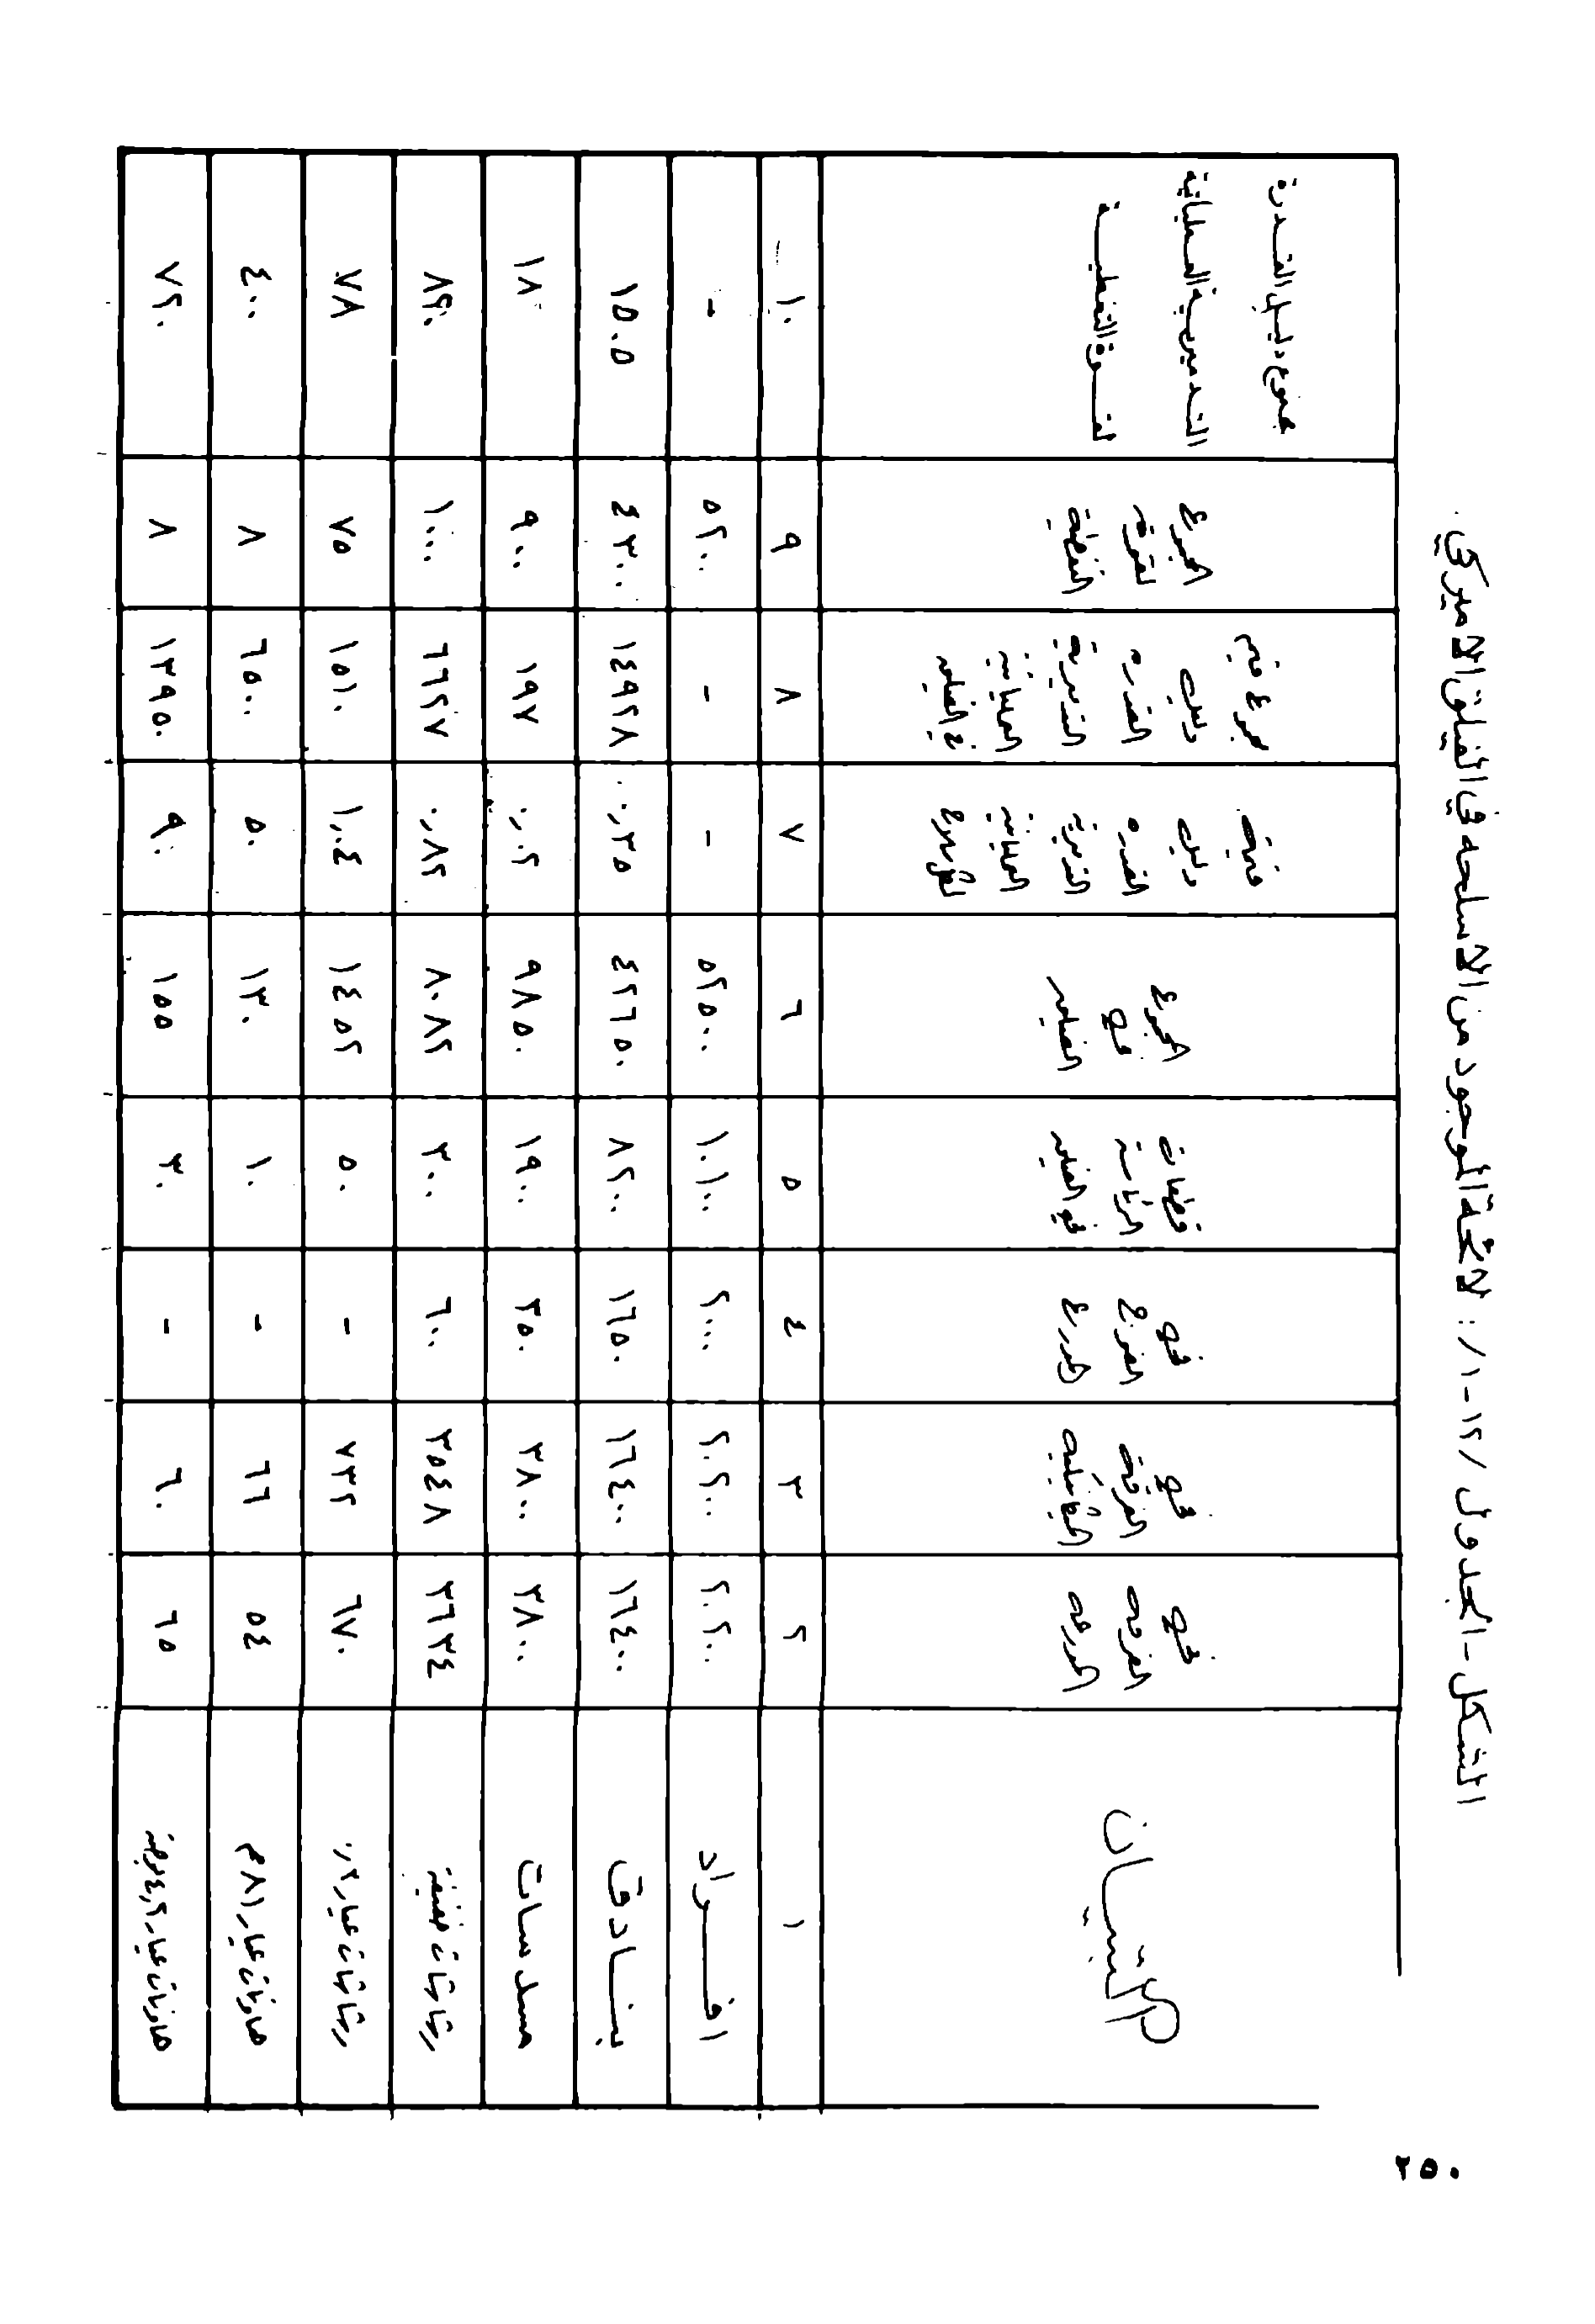 الشكل - الجدول /١٢-١/ : لائحة الموجود من الاسلحه في الفيلق الاميركي
البيان
في الفرقه المدرعه
في الفرقة الميكانيكيه
في الفوج المدرع
قطعات الرئاسة في الفيلق
المجموع في الفيلق
قيمة دليل القدره التدميرية العملياتية لكل سلاح
مجموع قيم دليل القدره التدميرية العملياتية في الفيلق
المجموع لقوة التغطية
مجموع دليل القدرة التدميرية العملياتية لقوة التغطية
١ ٢ ٣ ٤ ٥ ٦ ٧ ٨ ٩ ١٠
افراد ٢٠٢٠٠ ٢٠٢٠٠ ٢٠٠٠ ١٠١٠٠ ٥٢٥٠٠ - - ٥٢٠٠ -
بنادق ١٦٤٠٠ ١٦٤٠٠ ١٦٥٠ ٨٢٠٠ ٤٢٦٥٠ ٠,٣٥ ١٤٩٢٨ ٤٣٠٠ ١٥٠٥
مسدسات ٣٨٠٠ ٣٨٠٠ ٣٥٠ ١٩٠٠ ٩٨٥٠ ٠,٠٢ ١٩٧ ٩٠٠ ١٨
رشاشات خفيفة ٣٦٣٤ ٣٥٤٨ ٦٠٠ ٣٠٠ ٨٠٨٢ ٠,٨٢ ٦٦٢٧ ١٠٠٠ ٨٢٠
رشاشات عيار ٠,٣ ٦٧٠ ٧٣٢ - ٥٠ ١٤٥٢ ١,٠٤ ١٥١٠ ٧٥ ٧٨
هاونات عيار ٨١ م ٥٤ ٦٦ - ١٠ ١٣٠ ٥٠ ٦٥٠٠ ٨ ٤٠٠
هاونات عيار ٤,٢ بوصة ٦٥ ٦٠ - ٣٠ ١٥٥ ٩٠ ١٣٩٥٠ ٨ ٧٢٠
٢٥٠